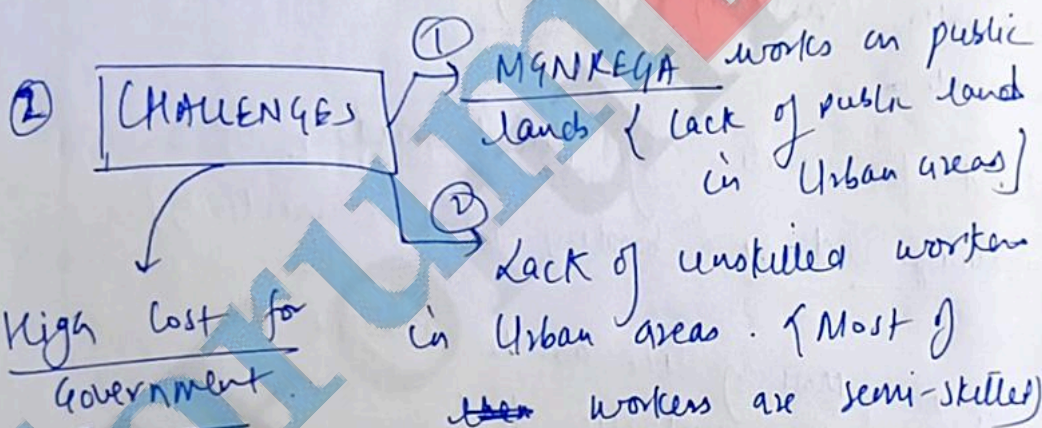 ② CHALLENGES
① MGNREGA works on public
lands { lack of public land
in Urban areas]
② Lack of unskilled workers
in Urban areas. {Most of
workers are semi-skilled)
High Cost for
Government